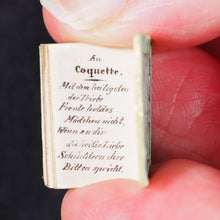 An
Coquette.
Mit den
der Triebe
holdes
Mädchen nicht,
Wenn zu dir
die Liebe
Schüchtern ihre
Bitten spricht.